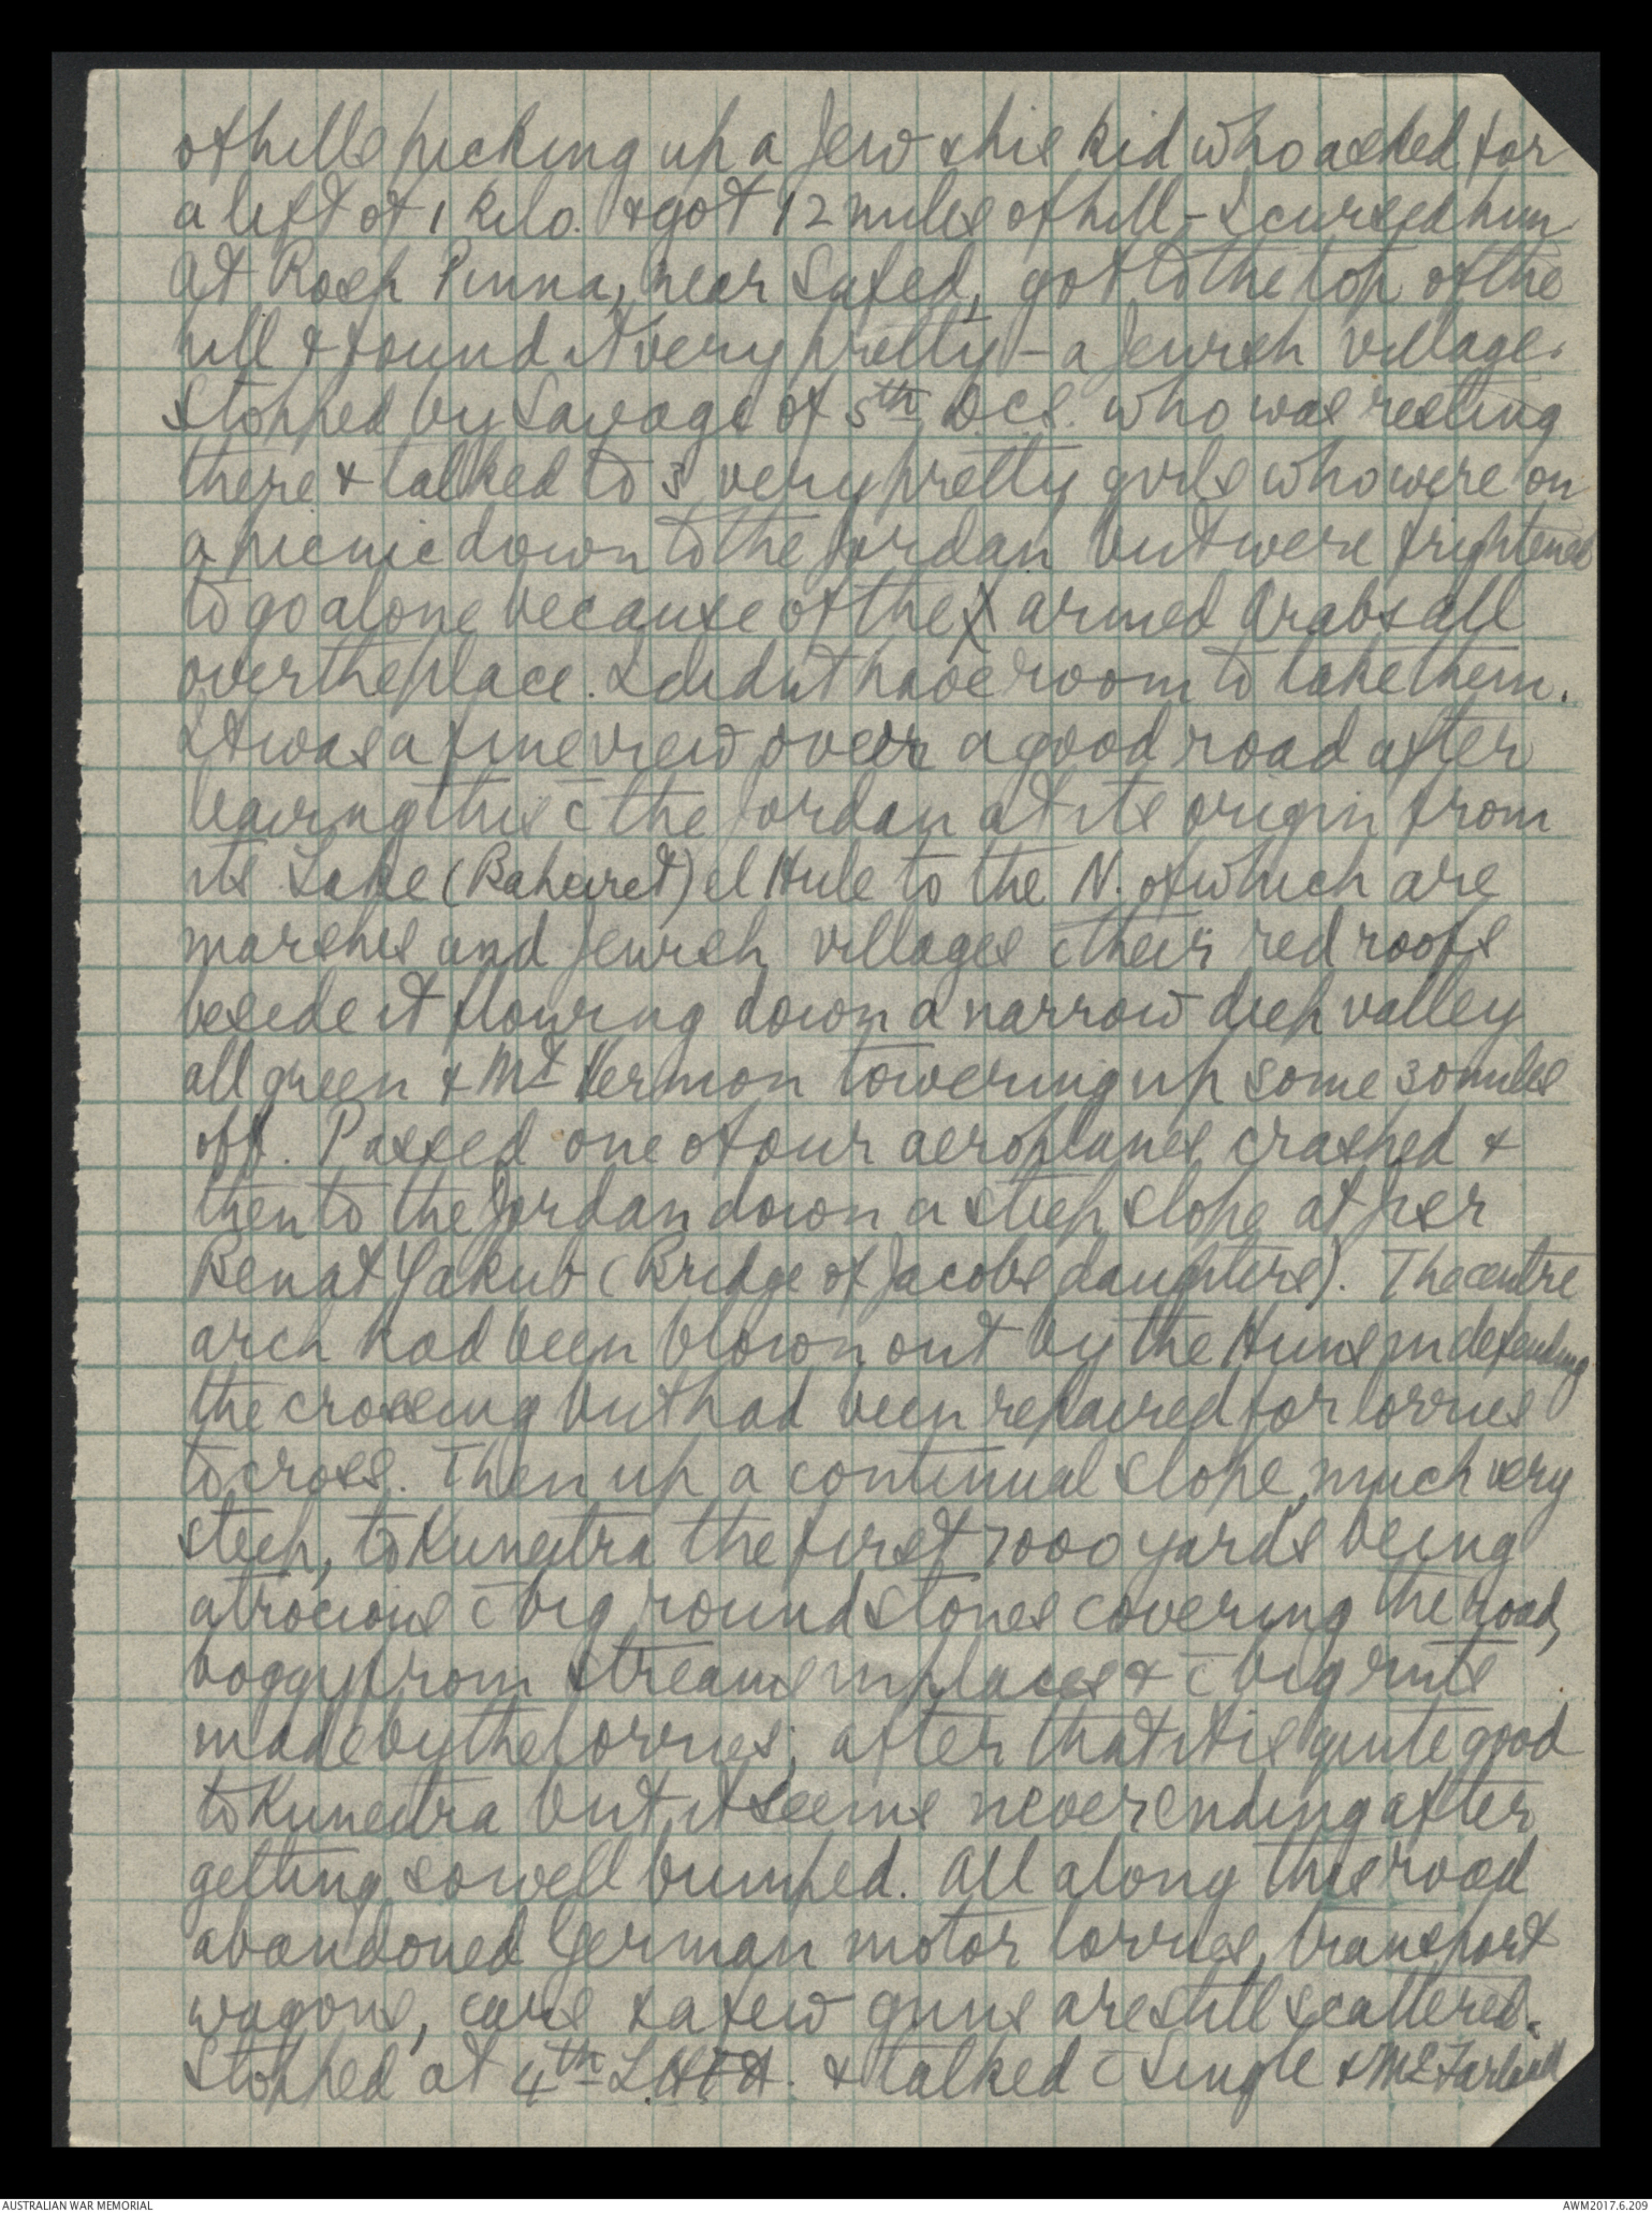 of hills picking up a Jew & his kid who asked for
a lift of 1 kilo. & got 12 miles of hill - I cursed him
At Rosh Pinna, near Safed, got to the top of the
hill & found it very pretty - a Jewish village.
Stopped by Savage of 5th D.C.S. who was resting
there & talked to 3 very pretty girls who were on
a picnic down to the Jordan but were frightened
to go alone because of the armed Arabs all
over the place. I didn't have room to take them.
It was a fine view over a good road after
leaving this c̄ the Jordan at its origin from
its Lake (Baheiret) el Hule to the N. of which are
marshes and Jewish villages c̄ their red roofs
beside it flowing down a narrow deep valley
all green & Mt Hermon towering up some 30 miles
off. Passed one of our aeroplanes crashed &
then to the Jordan down a steep slope at Jisr
Benat Yakub (Bridge of Jacobs daughters). The centre
arch had been blown out by the Huns in defending
the crossing but had been repaired for lorries
to cross. Then up a continual slope, much very
steep, to Kuneitra the first 7000 yards being
atrocious c̄ big round stones covering the road,
boggy from streams in places & c̄ big ruts
made by the lorries; after that it is quite good
to Kuneitra but it seems never ending after
getting so well bumped. All along this road
abandoned German motor lorries, transport
wagons, cars & a few guns are still scattered.
Stopped at 4th L.H. & talked c̄ Single & McFarland
AUSTRALIAN WAR MEMORIAL
AWM2017.6.209